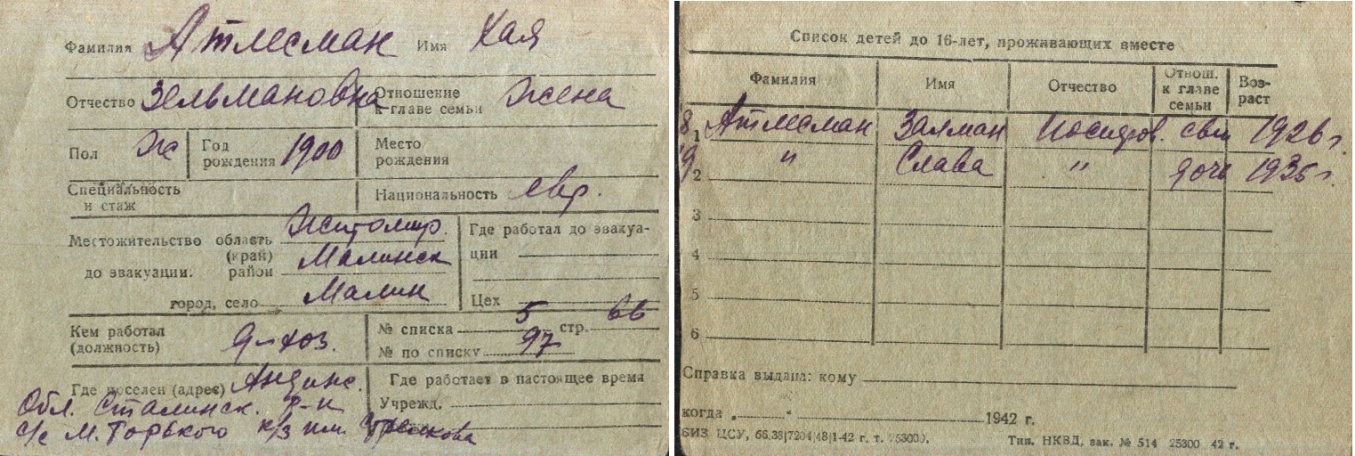 Фамилия Атлесман Имя Хая
Отчество Зельмановна Отношение к главе семьи Жена
Пол Ж Год рождения 1900 Место рождения
Специальность и стаж Национальность евр.
Местожительство до эвакуации. область (край) Житомир.
район Малинск
город, село Малин
Где работал до эвакуации
Цех
Кем работал (должность) д-хоз.
№ списка 5 стр. 66
№ по списку 97
Где поселен (адрес) Андижс.
Обл. Сталинск. р-н
с/с М. Горького к/з им.
Где работает в настоящее время
Учрежд.
Список детей до 16-лет, проживающих вместе
Фамилия Имя Отчество Отнош. к главе семьи Возраст
1 Атлесман Залман 1926 г.
2 " Слава " дочь 1935 г.
3
4
5
6
Справка выдана: кому
когда „ “ 1942 г.
БИЗ ЦСУ, 1-42 г. т.
Тип. НКВД, зак. № 514 25300 42 г.